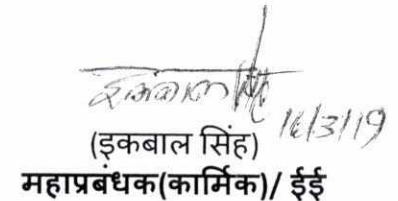 इकबाल सिंह 16/3/19
(इकबाल सिंह)
महाप्रबंधक(कार्मिक)/ ईई